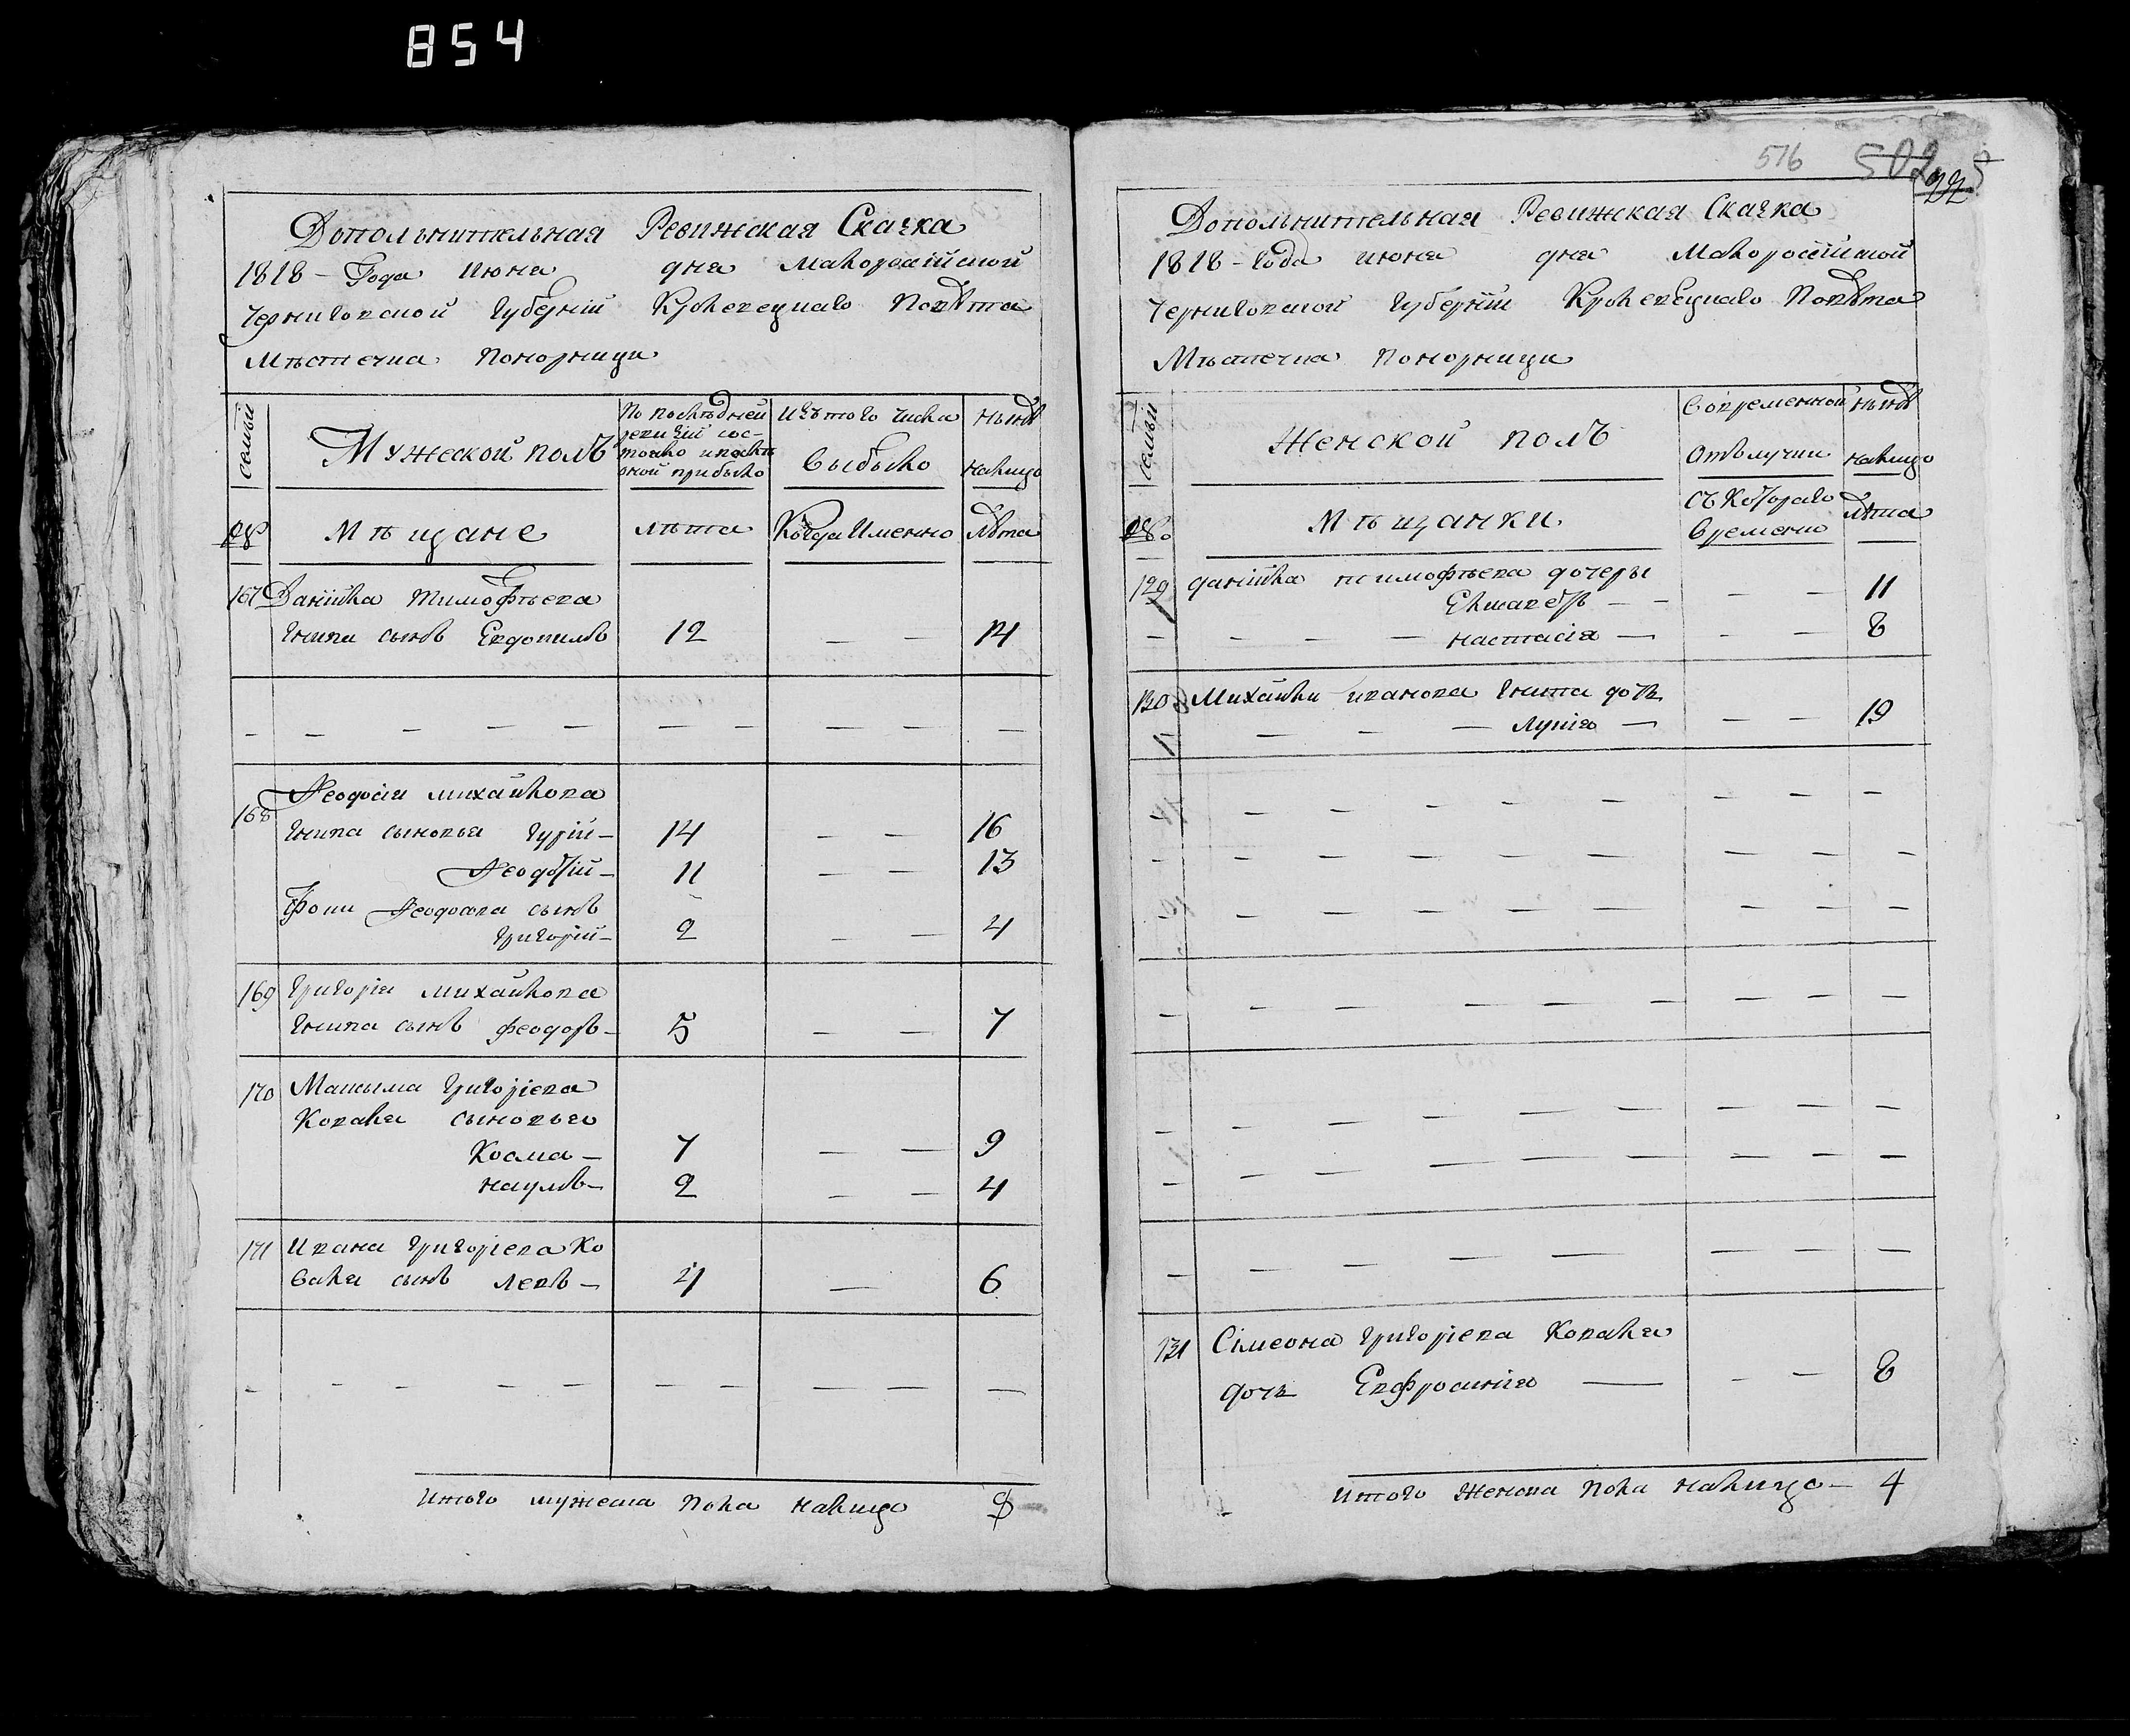 854
Дополнительная Ревижская Скаска
1818 – Года Июня дня Малоросійской
Черниговской Губерніи Кролевецкаго Повѣта
Мѣстечка Понорницы
семьи
Мужеской полъ
По послѣдней
ревизіи сос-
тояло и послѣ
оной прибыло
Изъ того числа
выбыло
нынѣ
налицо
№
Мѣщане
лѣта
Когда Именно
Лѣта
167 Даніила Тимофѣева
сынъ Евдокимъ 12 — — 14
— — — — — — — — — —
168 Феодосія Михайлова
сыновья Гурій – 14 — — 16
Феодосій – 11 — — 13
Фомы Феодосіева сынъ
Григорій – 2 — — 4
169 Григорія Михайлова
сынъ Феодоръ – 5 — — 7
170 Максыма Григоріева
Коваля сыновья
Косма – 7 — — 9
Наумъ – 2 — — 4
171 Ивана Григоріева Ко
валя сынъ Левъ – 4 — 6
— — — — — — — — — —
Итого мужеска пола налицо 8
576 502
Дополнительная Ревижская Скаска
1818 – Года Июня дня Малоросійской
Черниговской Губерніи Кролевецкаго Повѣта
Мѣстечка Понорницы
семьи
Женской полъ
Во временной
отлучки
нынѣ
налицо
№
Мѣщанки
Съ Котораго
времени
Лѣта
129 Даніила Тимофѣева дочеры
— — 11
— — — — Настасія — — — 8
130 Михайлы Иванова дочь
— — — — — — 19
131 Сімеона Григоріева Коваля
дочь Евфросинія — — — 8
Итого женска пола налицо – 4